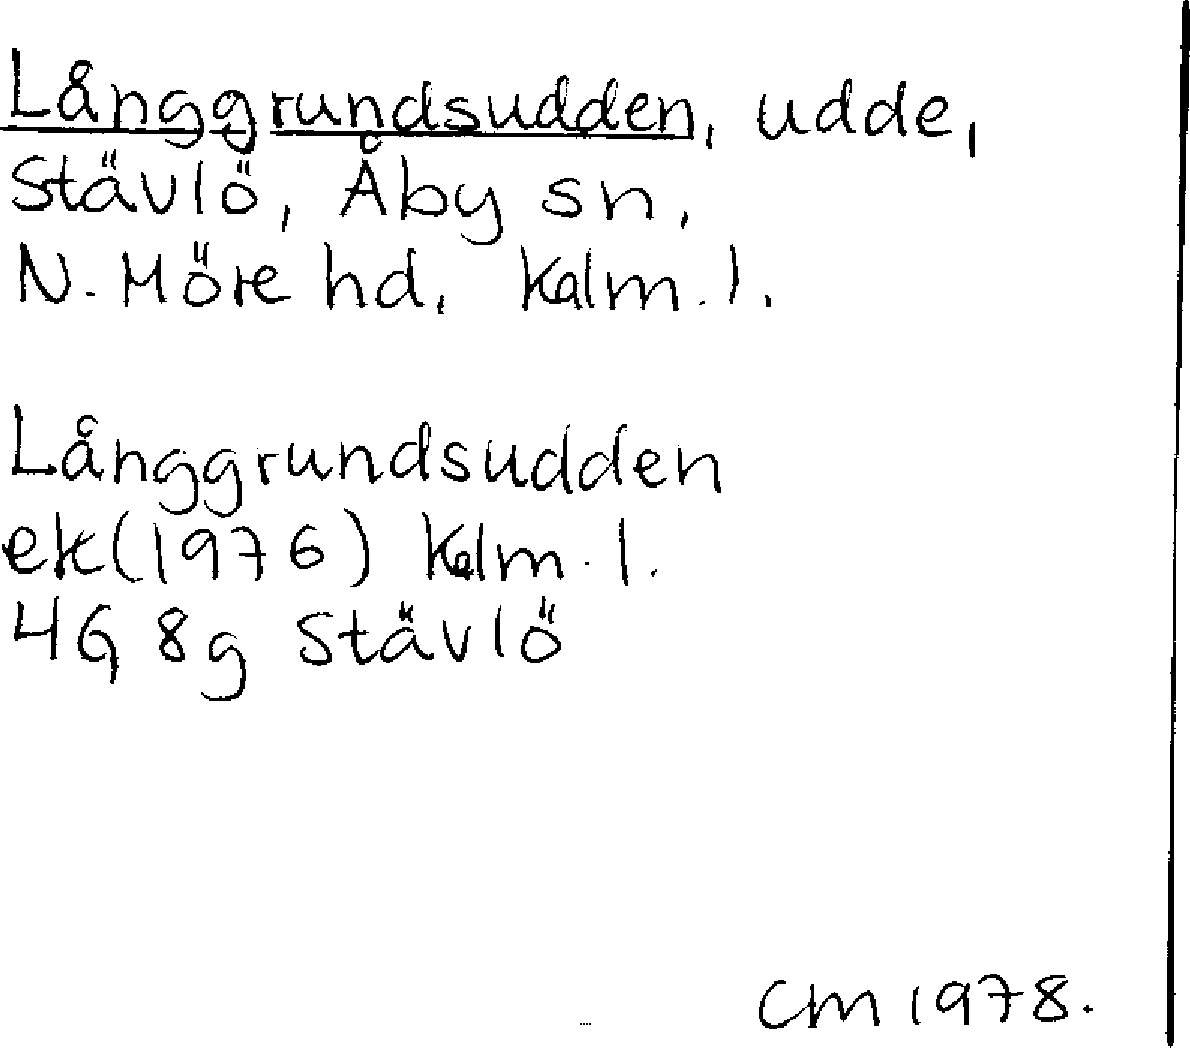 Långgrundsudden, udde,
Stävlö, Åby sn,
N. Möre hd, Kalm. l.
Långgrundsudden
ek(1976) Kalm. l.
4G 8g Stävlö
CM 1978.